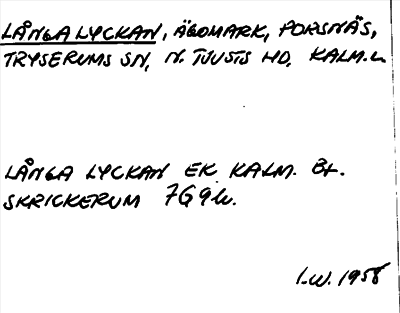 LÅNGA LYCKAN, ÄGOMARK, PORSNÄS,
TRYSERUMS SN, N. TJUSTS HD, KALM. L.
LÅNGA LYCKAN EK. KALM. BL.
SKRICKERUM 7G9b.
I.W. 1958